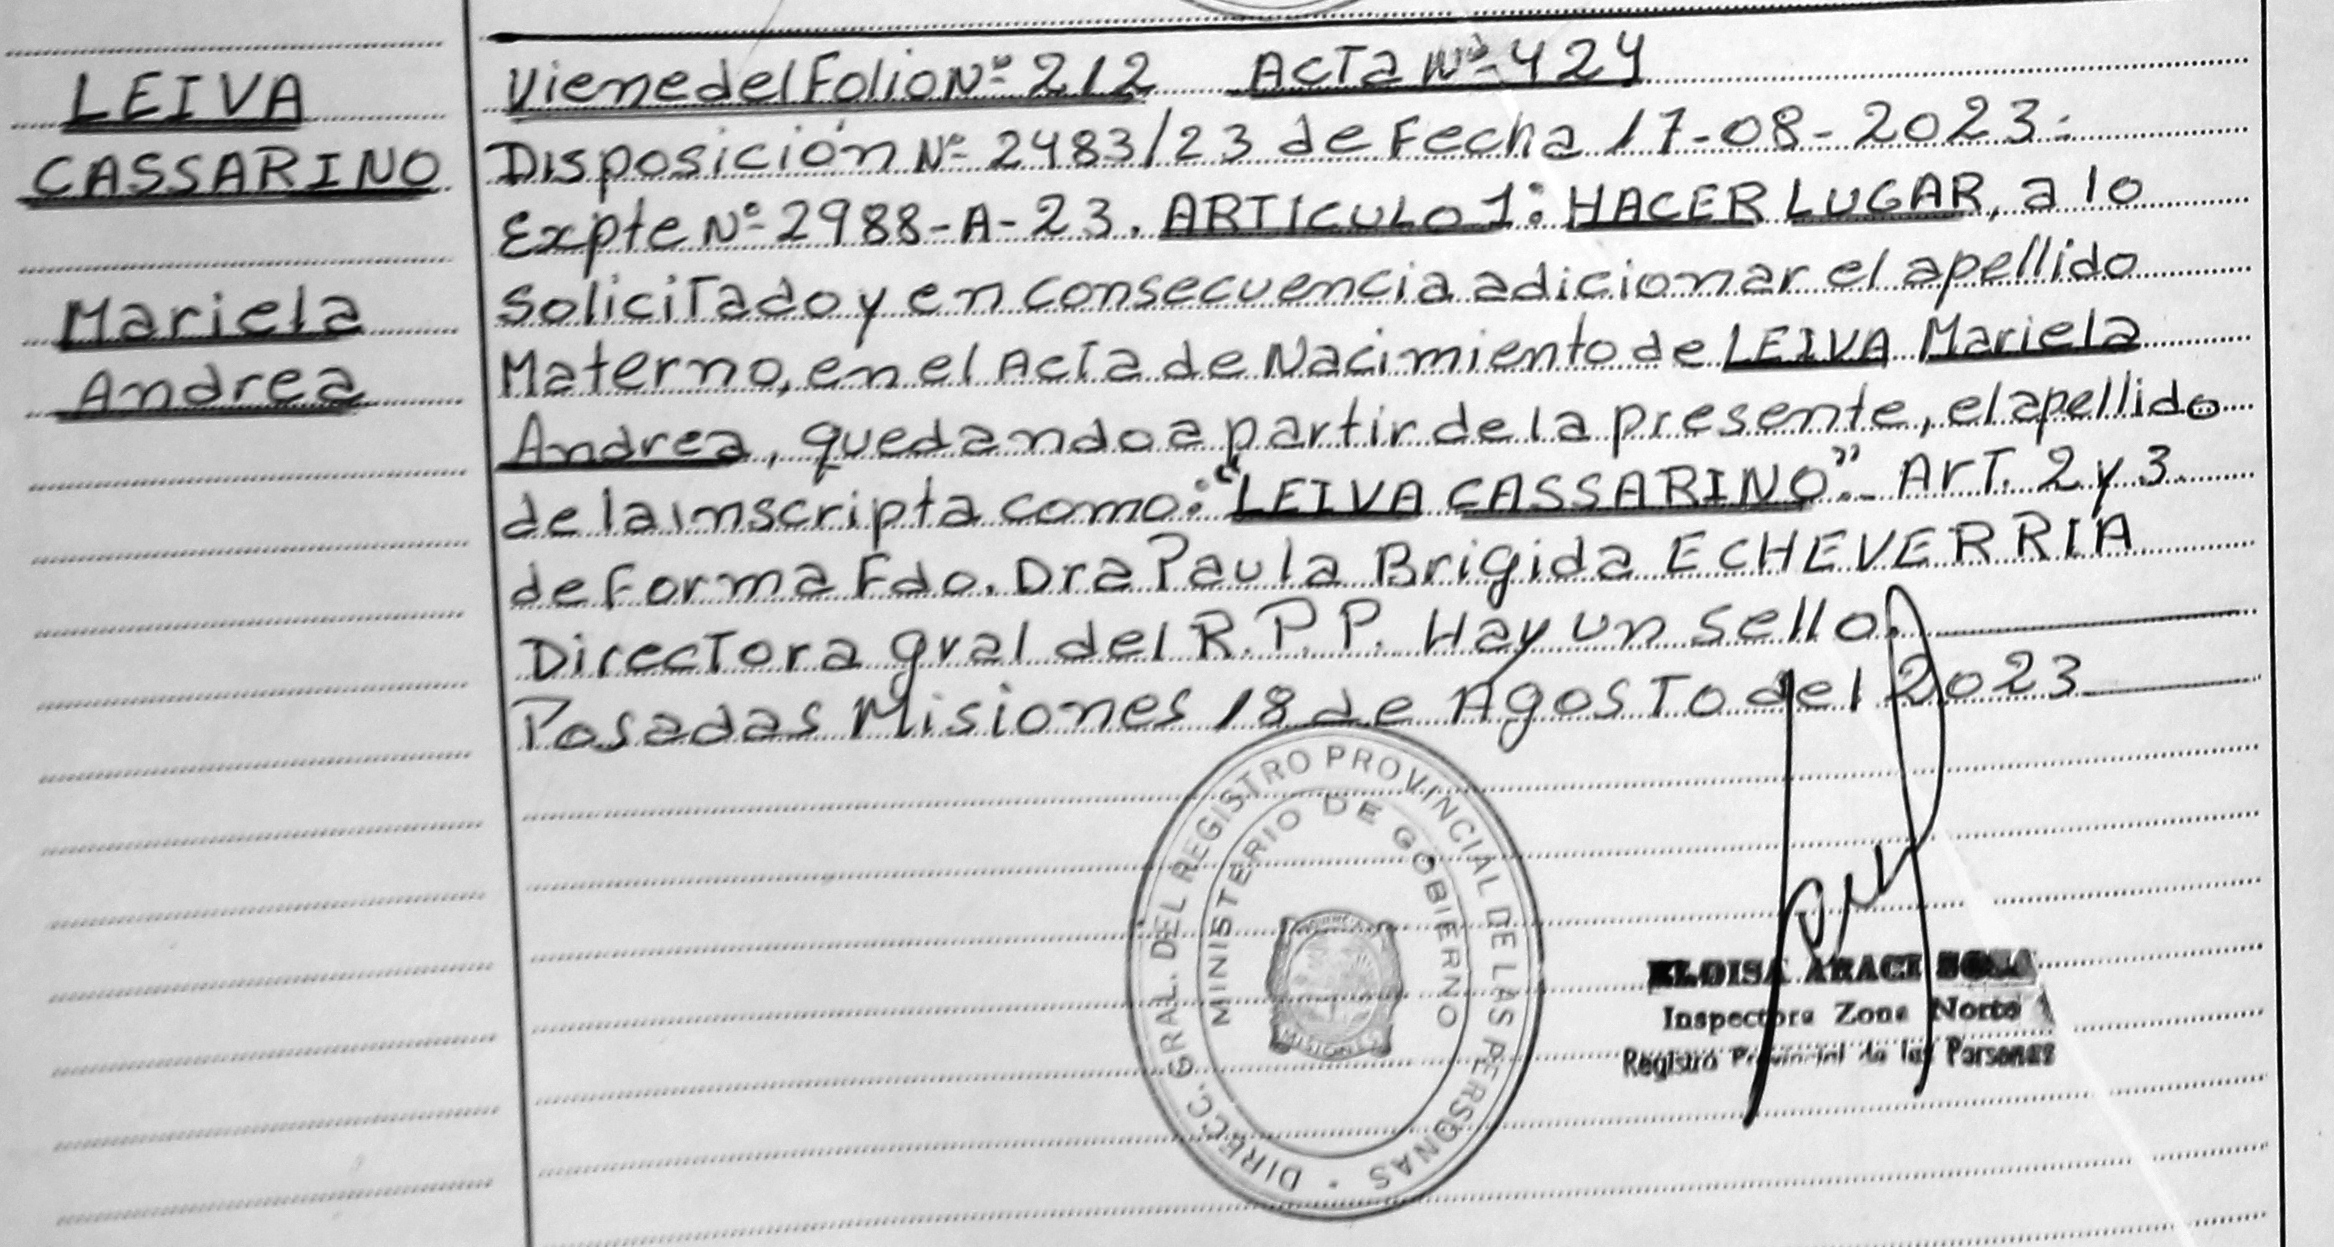 LEIVA
CASSARINO
Mariela
Andrea
Viene del Folio Nº 212 Acta Nº 424
Disposición Nº 2483/23 de Fecha 17-08-2023-
Expte Nº 2988-A-23. ARTICULO 1º: HACER LUGAR, a lo
Solicitado y en consecuencia adicionar el apellido
Materno, en el Acta de Nacimiento de LEIVA Mariela
Andrea, quedando a partir de la presente, el apellido
de la inscripta como: "LEIVA CASSARINO".- Art. 2 y 3.
de Forma Fdo. Dra Paula Brigida ECHEVERRIA
Directora gral del R.P.P. Hay un sello.
Posadas Misiones 18 de Agosto del 2023
DIRECC. GRAL. DEL REGISTRO PROVINCIAL DE LAS PERSONAS
MINISTERIO DE GOBIERNO
MISIONES
ELOISA ARACI
Inspectora Zona Norte
Registro Provincial de las Personas